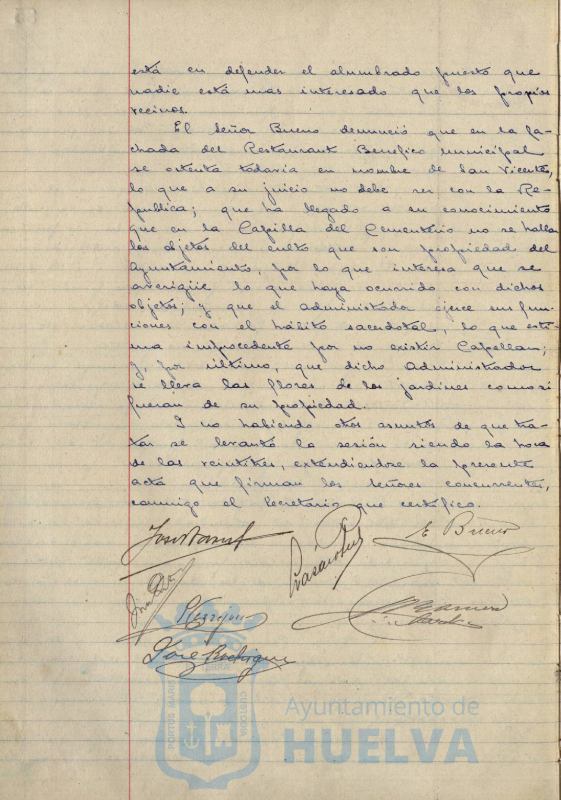 está en defender el alumbrado puesto que
nadie está mas interesado que los propios
vecinos.
El Señor Bueno denunció que en la fa-
chada del Restaurant Benefico municipal
se ostenta todavia en nombre de San Vicente,
lo que a su juicio no debe ser con la Re-
publica; que ha llegado a su conocimiento
que en la Capilla del Cementerio no se hallan
los objetos del culto que son propiedad del
Ayuntamiento, por lo que interesa que se
averigüe lo que haya ocurrido con dichos
objetos; y que el administrador ejerce sus fun-
ciones con el hábito sacerdotal, lo que esti-
ma improcedente por no existir Capellan;
y, por último, que dicho Administrador
se lleva las flores de los jardines como si
fueran de su propiedad.
Y no habiendo otros asuntos de que tra-
tar se levantó la sesión siendo la hora
de las veintitres, extendiendose la presente
acta que firman los señores concurrentes,
conmigo el Secretario que certifico.
E Bueno
José Rodriguez
PORTUS MARIS
CUSTODIA
Ayuntamiento de
HUELVA